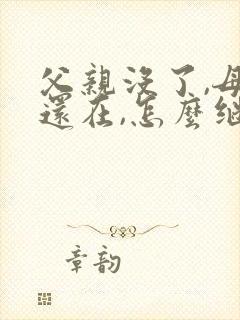 父親沒了,母
還在,怎麼繼
章韵